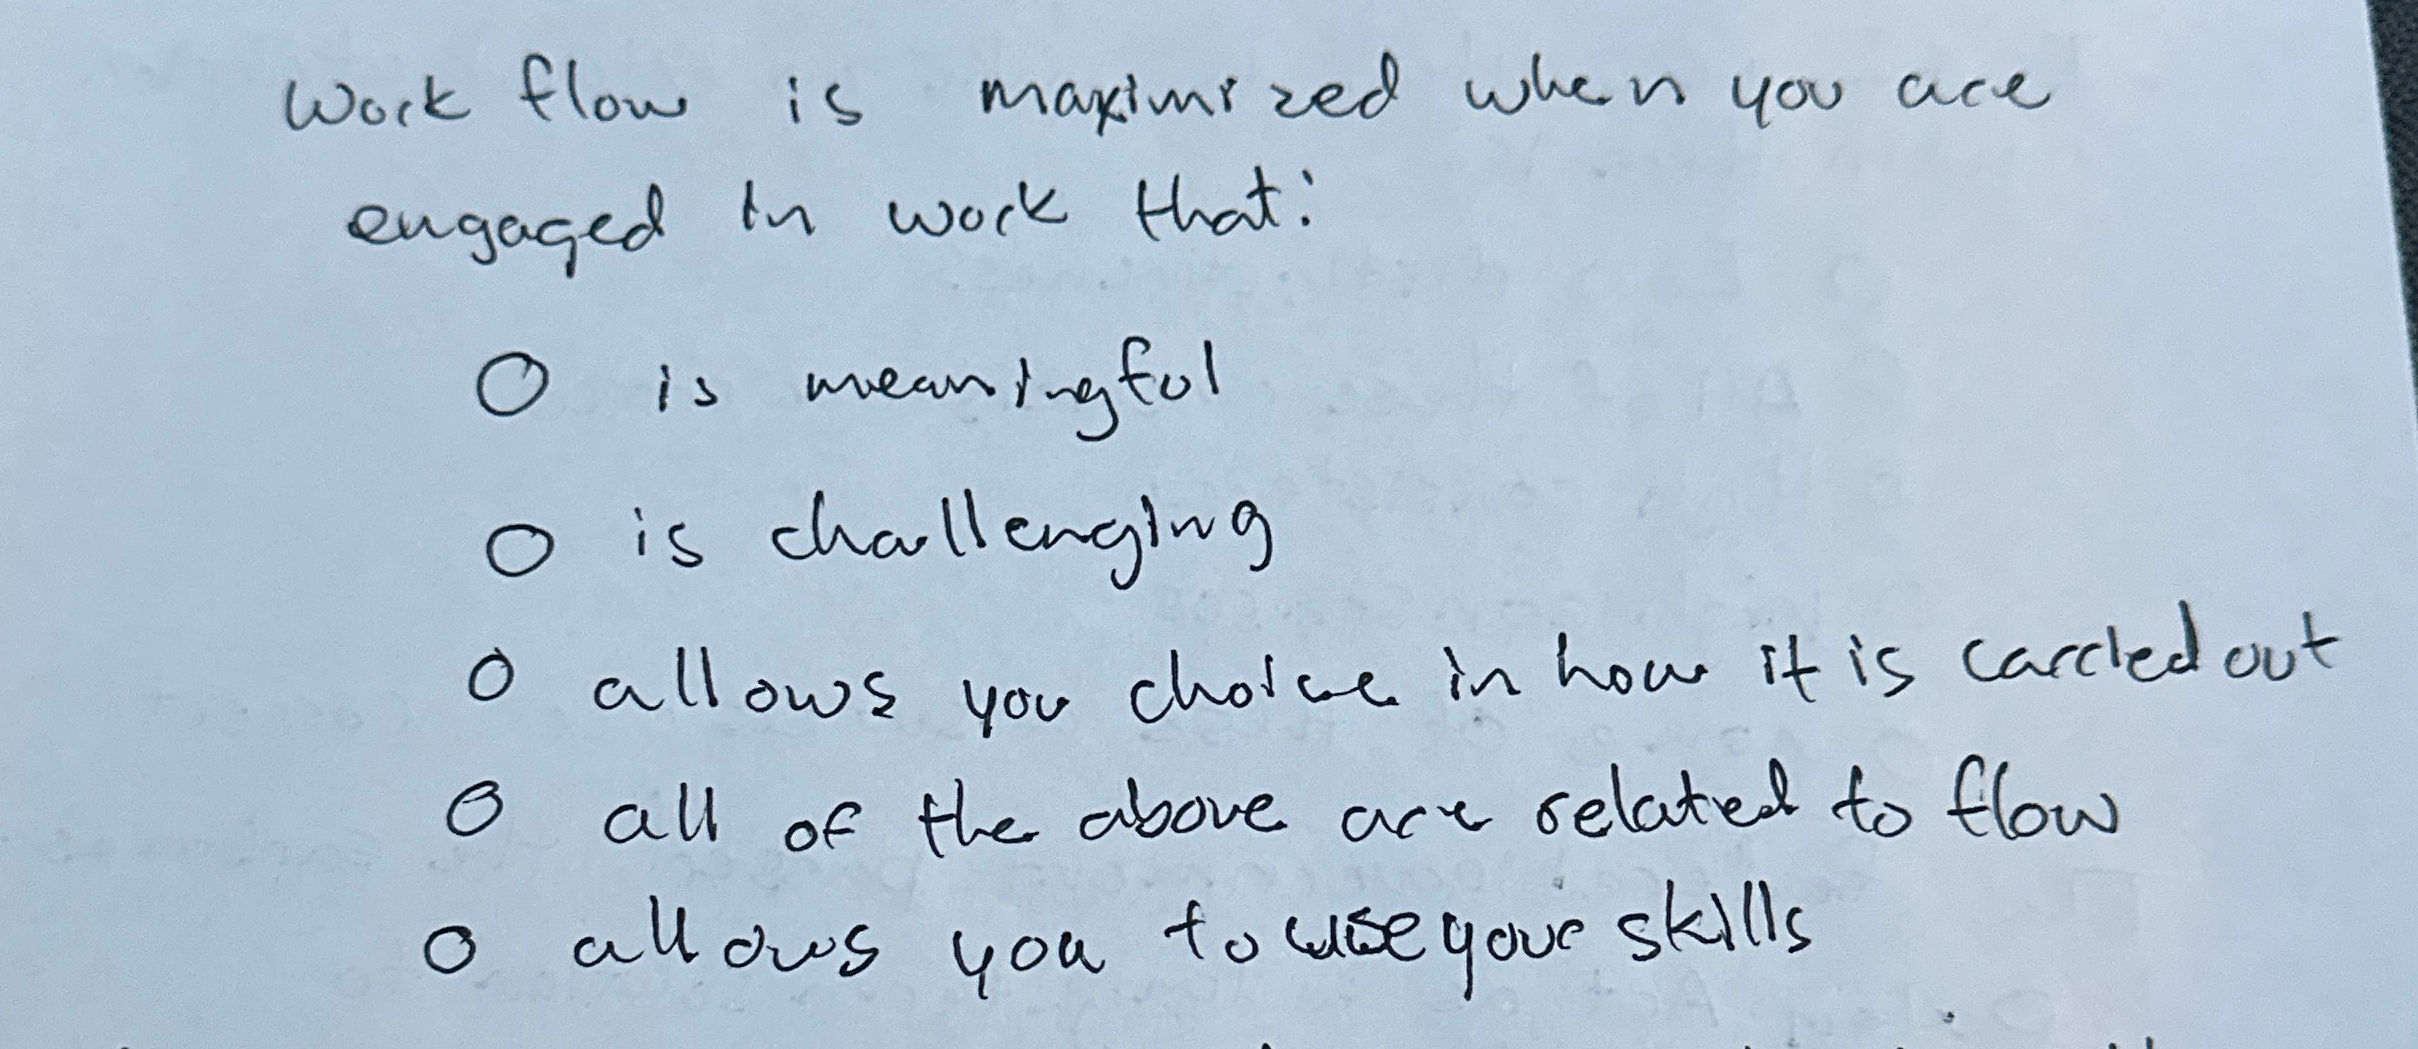 Work flow is maximized when you are
engaged in work that:
O is meaningful
O is challenging
O allows you choice in how it is carried out
O all of the above are related to flow
O allows you to use your skills